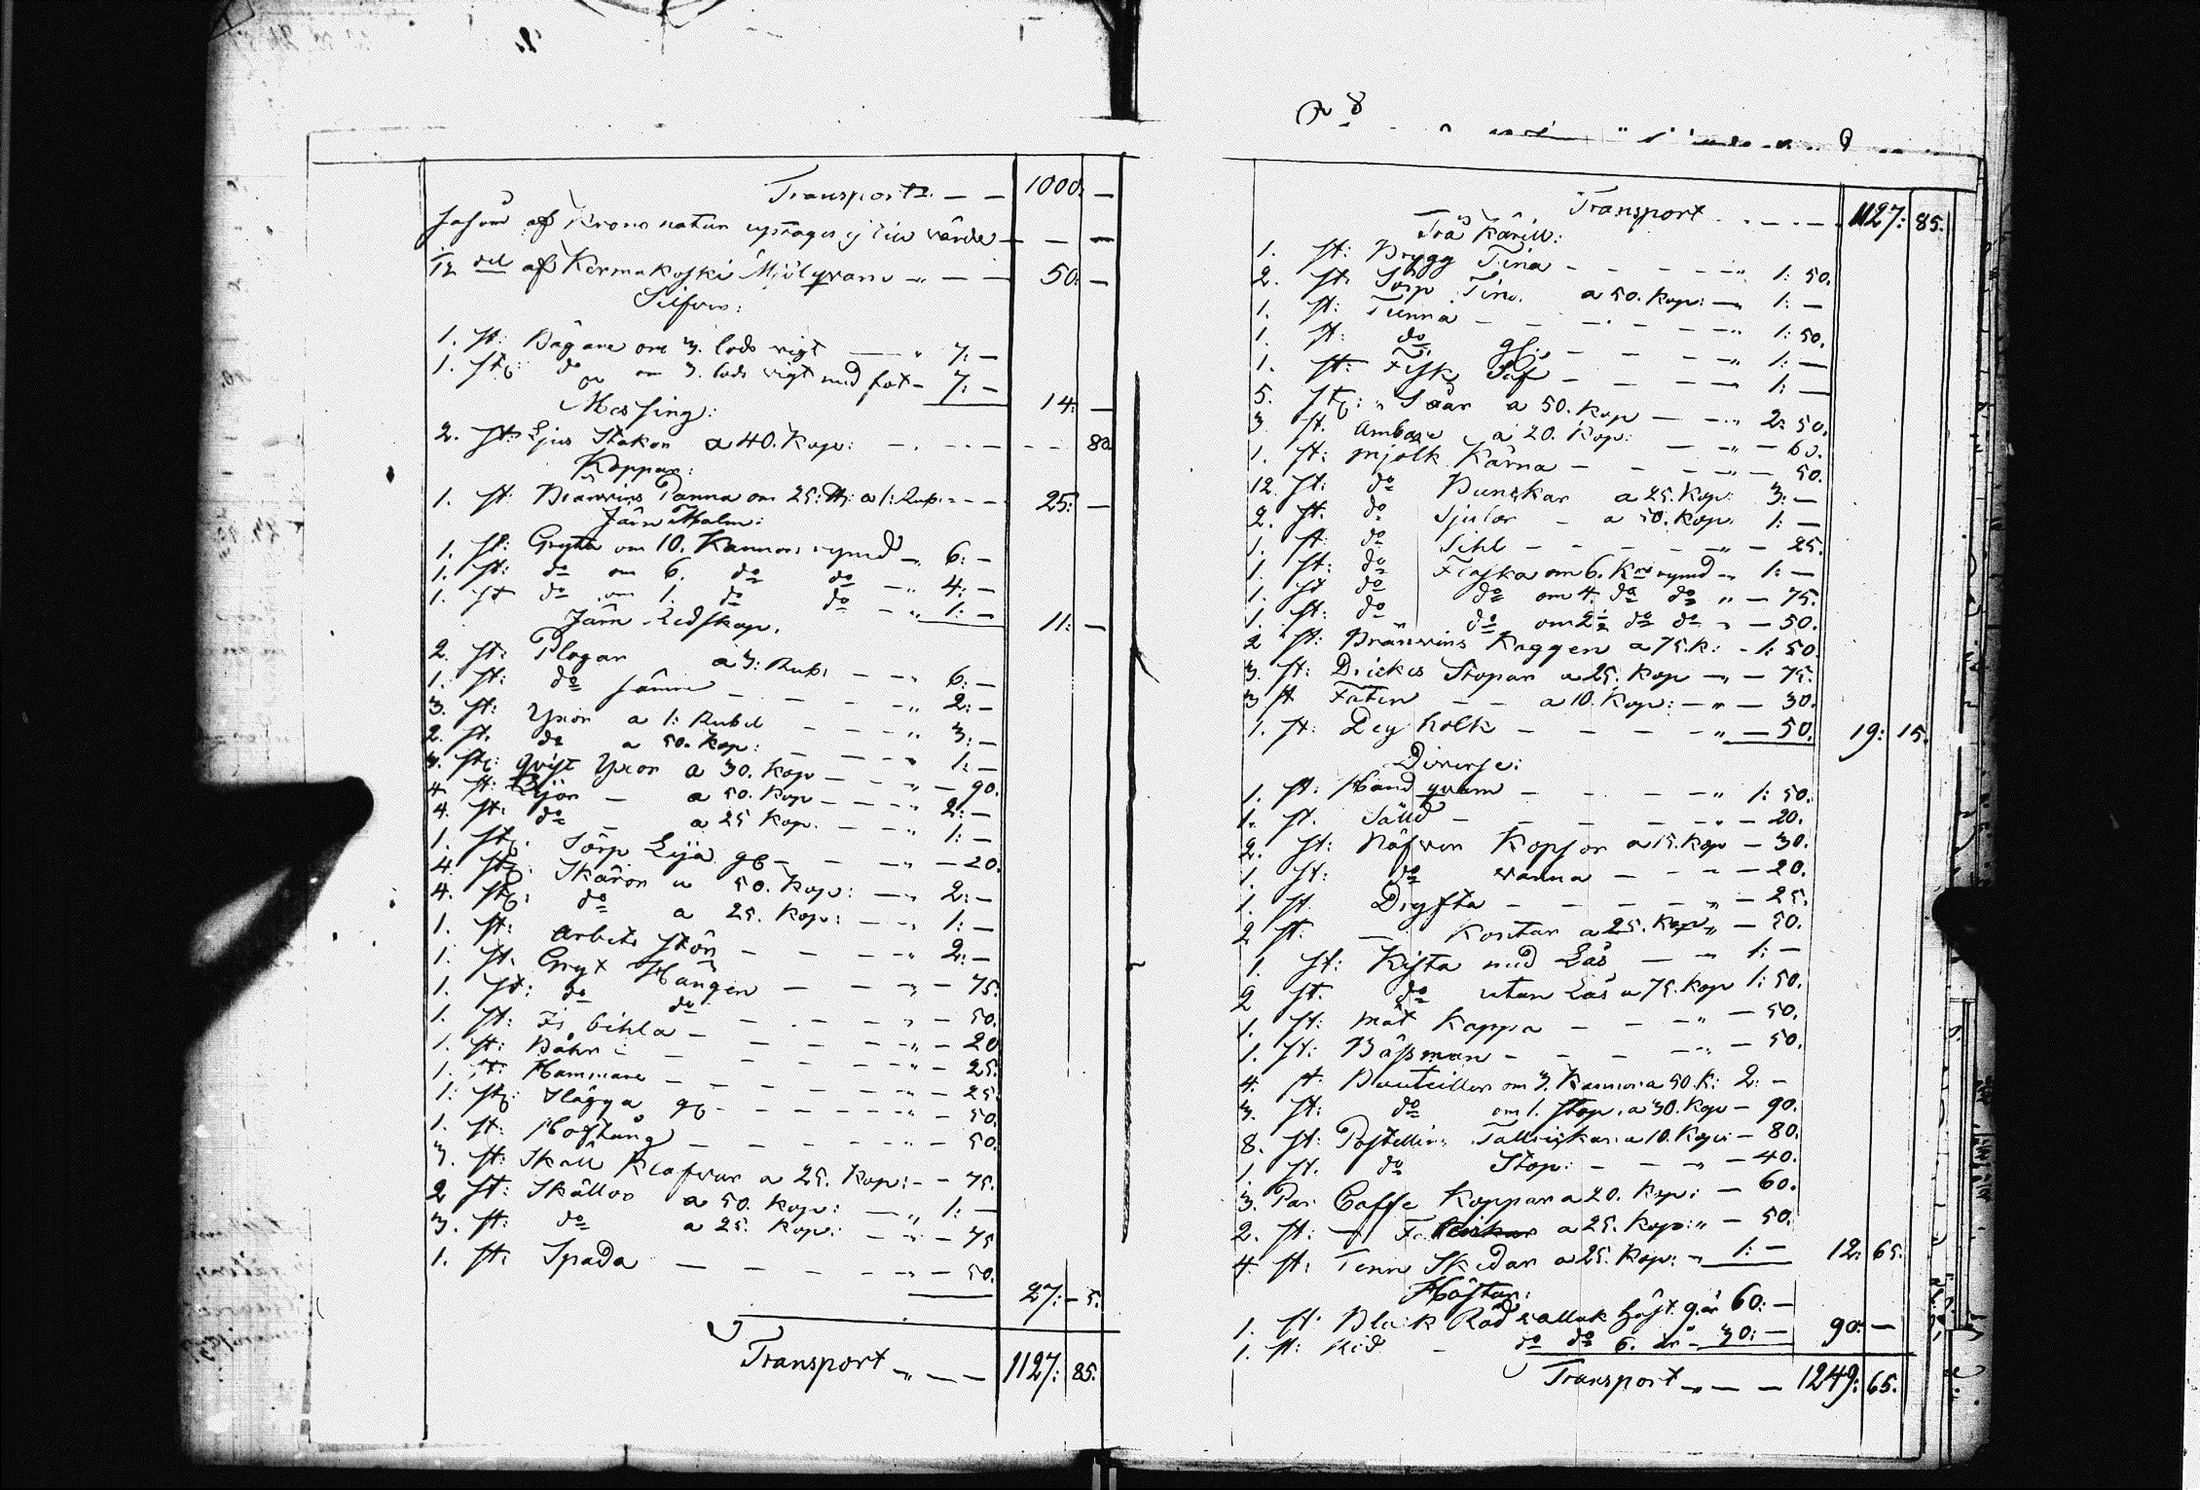 Transport — — 1000: —
af Krono natur uptages ej till värde — — —
1/12 del af Kermakoski Mjölqvarn „ — — 50: —
Silfver:
1. st: Bägare om 3. lods vigt — „ 7: —
1. st: do om 3. lods vigt med fot — 7: — 14: —
Messing:
2. st: Ljus Stakar a 40. Kop: — — — — 80
Koppar:
1. st: Bränvins Panna om 25: ℔: a 1: Rub: — — 25: —
Järn Malm:
1. st: Gryta om 10. Kannors rymd „ 6: —
1. st: do om 6. do do — „ 4: —
1. st do om 1. do do — „ 1: — 11: —
Järn Redskap.
2. st: Plogar a 3: Rub: — — „ 6: —
1. st: do sämre — — — „ 2: —
3. st: Yxor a 1: Rubel — — — „ 3: —
2. st. do a 50. Kop: — — — „ 1: —
3. st: qvist Yxor a 30. Kop — — „ — 90.
4. st: Lijor — a 50. Kop — — — „ 2: —
4. st: do — a 25 Kop. — — „ 1: —
1. st. Sörp Lija gl — — — „ — 20.
4. st: Skäror a 50. Kop: — „ 2: —
4. st: do a 25. Kop: — „ 1: —
1. st: Arbets Stön — — — „ 2: —
1. st. Gryt Hängen — — — „ — 75.
1. st: do do — — — „ — 50.
1. st: Is bihla — — — — „ — 20
1. st: Båhr — — — — „ — 25.
1. st: Hammare — — — — „ — 25.
1. st: Slägga gl — — — „ — 50.
1. st: Hoftång — — — — „ — 50.
3. st: Skall Klafvar a 25. Kop: — — 75.
2 st: Skällor a 50. Kop: — „ 1: —
3. st: do a 25. Kop: — „ — 75
1. st: Spada — — — — „ — 50. 27: — 5.
Transport „ — — 1127: 85.
N 8
Transport . — — — 1127: 85.
Trä Kärill:
1. st: Brygg Tina — — — — „ 1: 50.
2. st: Sörp Tinor a 50. Kop: — 1: —
1. st: Tunna — — — — „ 1: 50.
1. st: do gl: — — — „ 1: —
1. st: Fisk — — — „ 1: —
5. st: „ Såar a 50. Kop — — „ 2: 50.
3 st. Ambare a 20. Kop: — „ — 60.
1. st: mjölk Kärna — — — „ — 50.
12. st: do Bunckar a 25. Kop: 3: —
2. st. do Sjular — a 50. Kop: 1: —
1. st: do Sihl — — — — „ — 25.
1. st: do Flaska om 6. Knrs rymd „ 1: —
1. st do do om 4. do do „ — 75.
1. st: do do om 2½ do do „ — 50.
2 st: Bränvins Kaggen a 75. K: - 1: 50.
3. st: Drickes Stopar a 25. Kop — „ — 75.
3 st Faten — — a 10. Kop: — „ — 30.
1. st: Deg holk — — — — „ — 50. 19: 15.
Diverse:
1. st: Hand qvarn — — — — „ 1: 50.
1. st. Såld — — — — „ — 20.
2. st: Näfver Kopsor a 15. Kop — 30.
1. st: do vanna — — — — 20.
1. st. Drygta — — — — „ — 25.
2 st: — Kontar a 25. Kop „ — 50.
1. st: Kista med Lås — — „ 1: —
2 st. do utan Lås a 75. Kop 1: 50.
1. st: mat Kappa — — — „ — 50.
1. st: Båssman — — — — „ — 50.
4. st: Bouteiller om 3. Kannor a 50. K: 2: —
3. st: do om 1. stop. a 30. Kop — 90.
8. st: Postellins Tallriskar a 10. Kop: — 80.
1 st. do Stop: — — „ — 40.
3. Par Caffe Koppar a 20. Kop: — 60.
2. st: a 25. Kop: „ — 50.
4. st: Tenn Skedar a 25. Kop: „ 1: — 12: 65.
Hästar:
1. st: Black Röd vallak häst 9. år 60: —
1. st: Röd — do do 6. år „ 30: — 90: —
Transport „ — — 1249: 65.